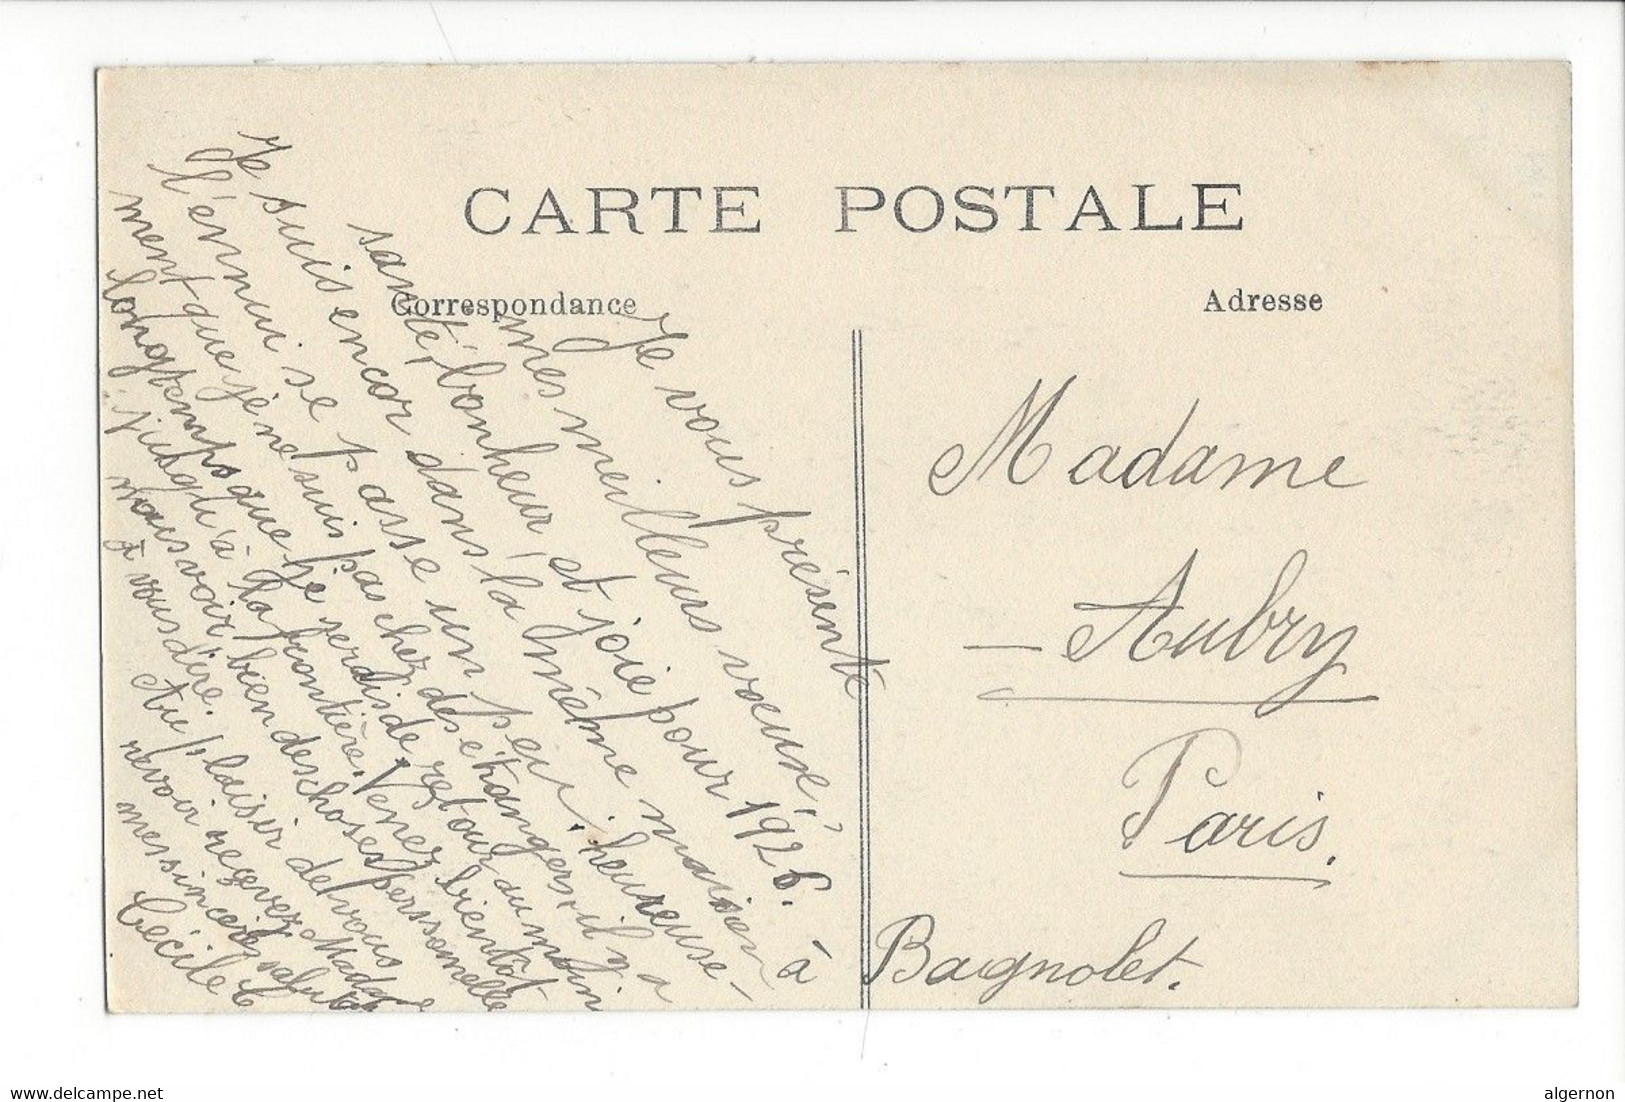 CARTE POSTALE
Correspondance
Adresse
Je vous présente
mes meilleurs voeux,
santé, bonheur et joie pour 1926.
Je suis encor dans la même maison à
l'ennui se passe un peu. heureuse-
ment que je ne suis pas chez des étrangers, il y a
longtemps que je serais de retour au moin
jusqu'à la frontière. Venez bientôt
nous voir bien des choses personnelle
à vous dire.
Au plaisir de vous
revoir reçevez Madame
mes sincères saluts
Cécile C
Madame
Aubry
Paris.
Bagnolet.
www.delcampe.net
algernon